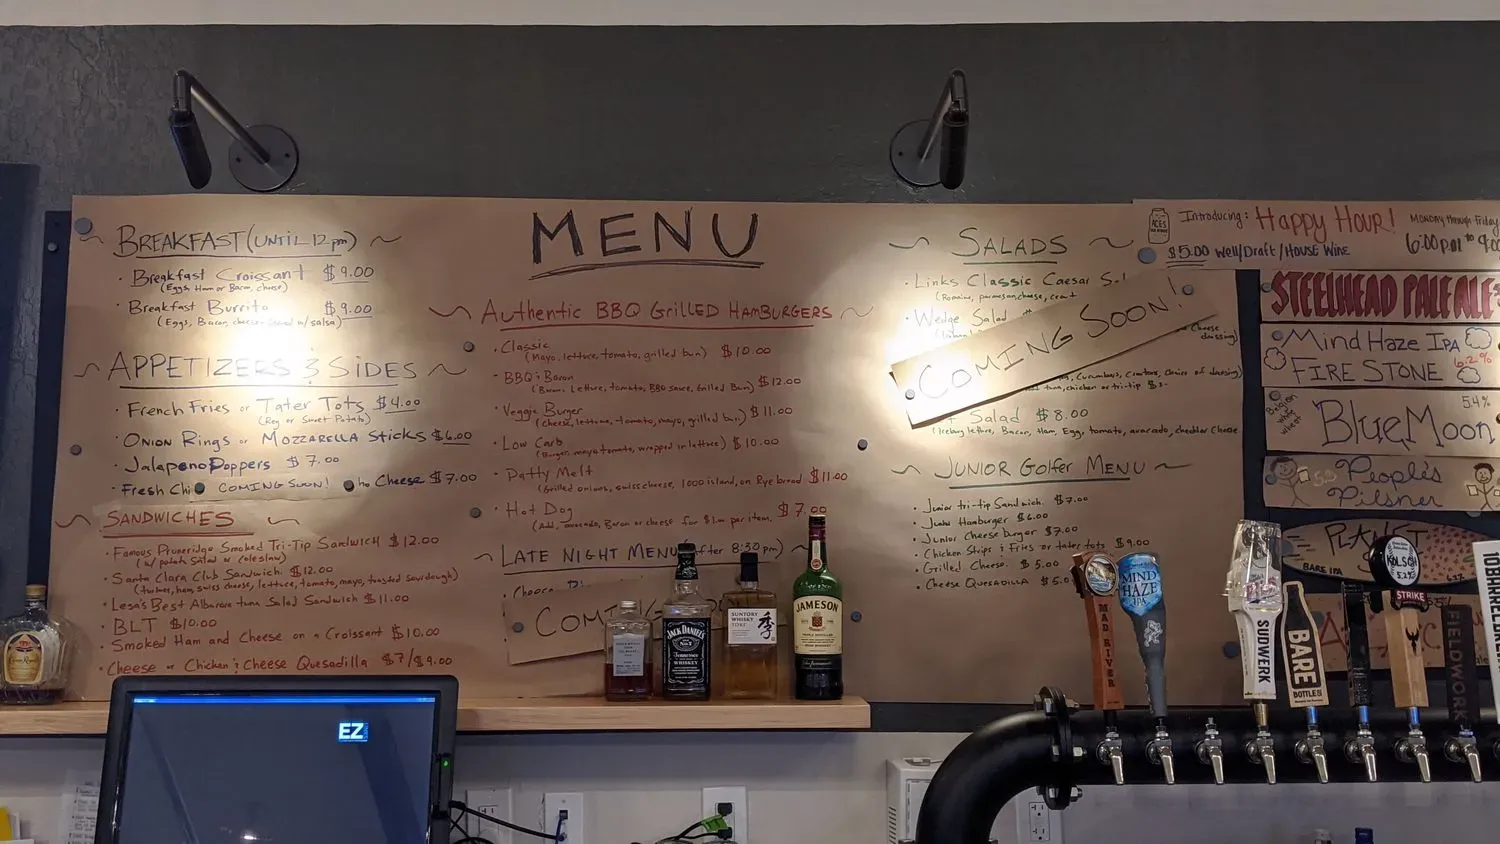 MENU
BREAKFAST (UNTIL 12pm)
Breakfast Croissant $9.00
(Eggs, Ham or Bacon, cheese)
Breakfast Burrito $9.00
(Eggs, Bacon, cheese w/salsa)
APPETIZERS & SIDES
French Fries or Tater Tots $4.00
(Reg or Sweet Potato)
Onion Rings or Mozzarella Sticks $6.00
Jalapeno Poppers $7.00
Fresh Chi COMING SOON! ho Cheese $7.00
SANDWICHES
Famous Pruneridge Smoked Tri-Tip Sandwich $12.00
(w/ potato salad or coleslaw)
Santa Clara Club Sandwich $12.00
(turkey, ham, swiss cheese, lettuce, tomato, mayo, toasted sourdough)
Lesa's Best Albacore tuna Salad Sandwich $11.00
BLT $10.00
Smoked Ham and Cheese on a Croissant $10.00
Cheese or Chicken & Cheese Quesadilla $7/$9.00
Authentic BBQ Grilled Hamburgers
Classic
(Mayo, lettuce, tomato, grilled bun) $10.00
BBQ & Bacon
(Bacon, Lettuce, tomato, BBQ sauce, Grilled Bun) $12.00
Veggie Burger
(cheese, lettuce, tomato, mayo, grilled bun) $11.00
Low Carb
(Burger, mayo, tomato, wrapped in lettuce) $10.00
Patty Melt
(Grilled onions, swiss cheese, 1000 island, on Rye bread $11.00
Hot Dog $7.00
(Add, avocado, Bacon or cheese for $1.00 per item,
LATE NIGHT MENU (after 8:30pm)
SALADS
Links Classic Caesar S
(Romaine, parmesan cheese, crout
Wedge Salad
Cheese
dressing)
COMING SOON!
, cucumbers, croutons, choice of dressing)
chicken or tri-tip $3-
Salad $8.00
(Iceberg lettuce, Bacon, Ham, Egg, tomato, avocado, cheddar Cheese
JUNIOR Golfer MENU
Junior tri-tip Sandwich $7.00
Junior Hamburger $6.00
Junior Cheese burger $7.00
Chicken Strips & Fries or tater tots $9.00
Grilled Cheese $5.00
Cheese Quesadilla $5.0
ACES
Introducing: Happy Hour!
Monday through Friday
6:00pm to
$5.00 Well/Draft/House Wine
STEELHEAD PALE ALE
Mind Haze IPA
FIRE STONE 6.2%
Belgian white wheat
Blue Moon 5.4%
People's
Pilsner
BARE IPA
MAD RIVER
MIND
HAZE
IPA
SUDWERK
BARE
BOTTLE
KÖLSCH
5.2%
STRIKE
FIELDWORK
10 BARREL BREW
JACK DANIEL'S
Tennessee
WHISKEY
SUNTORY
WHISKY
TOKI
季
JAMESON
Crown Royal
EZ